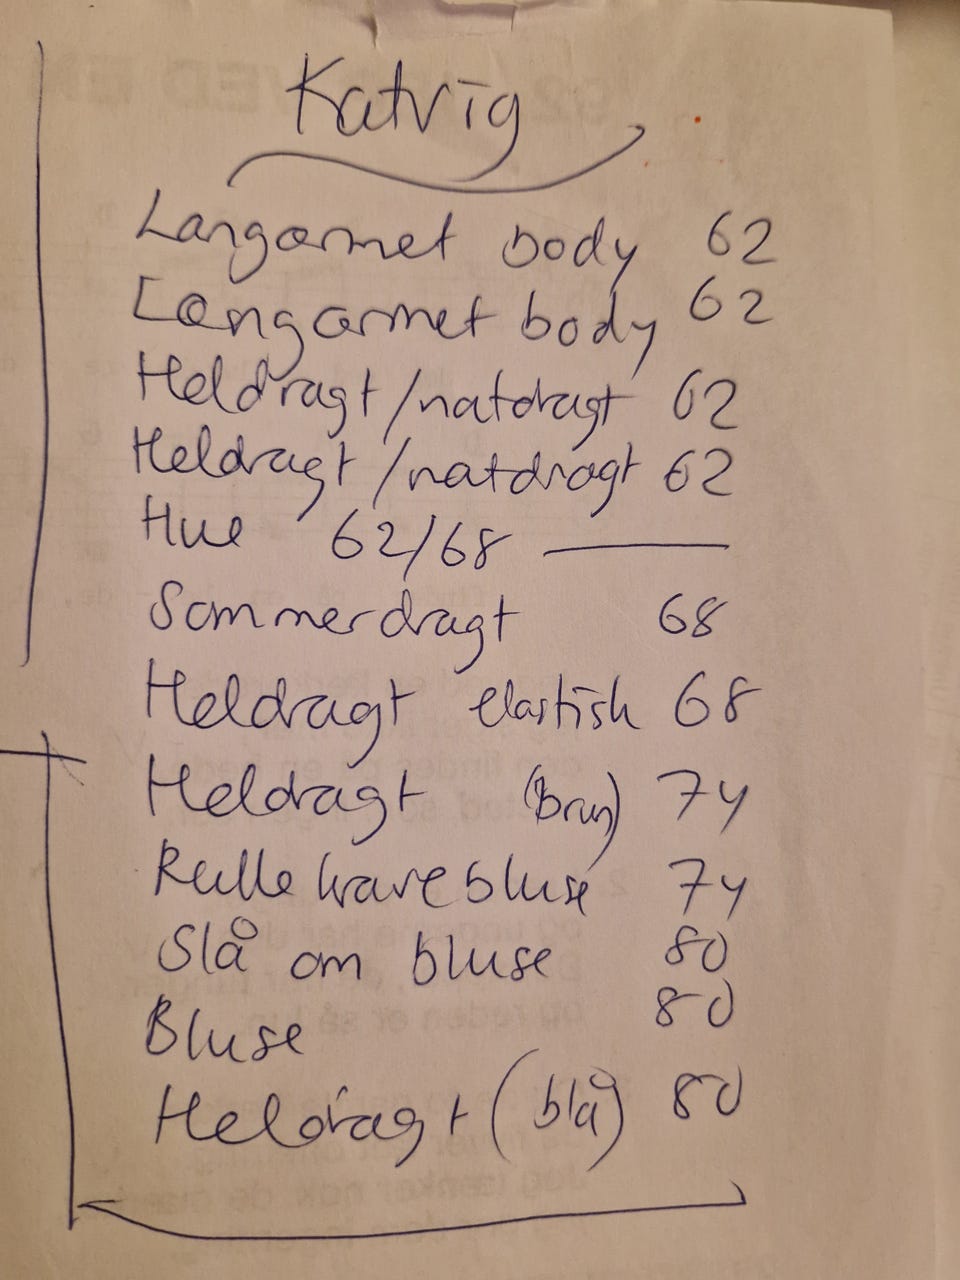 Katvig
Langarmet body 62
Langarmet body 62
Heldragt/natdragt 62
Heldragt/natdragt 62
Hue 62/68
Sommerdragt 68
Heldragt elastisk 68
Heldragt (brun) 74
Rullekravebluse 74
Slå om bluse 80
Bluse 80
Heldragt (blå) 80